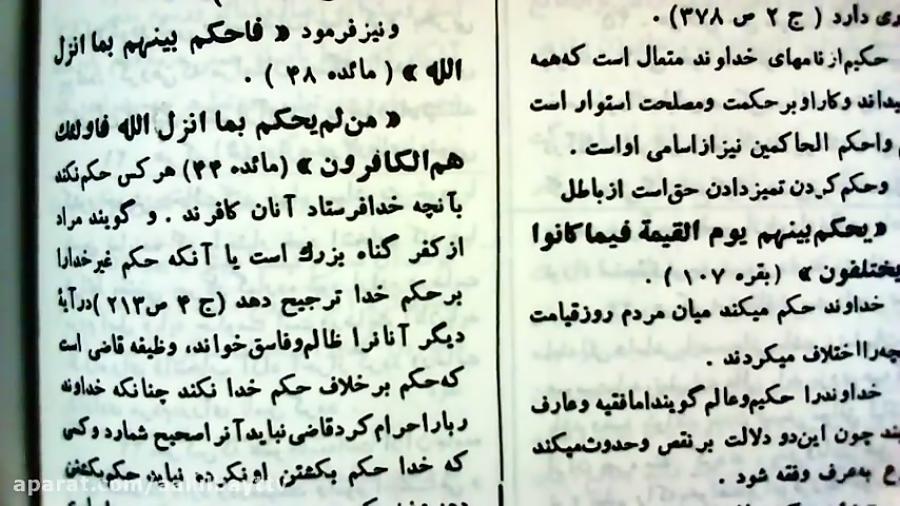 ری دارد ( ج ۲ ص ۳۷۸) .
حکیم از نامهای خداوند متعال است که همه
یداند و کار او بر حکمت و مصلحت استوار است
واحکم الحاکمین نیز از اسامی او است .
وحکم کردن تمیز دادن حق است از باطل
«یحکم بینهم یوم القیمة فیما کانوا
یختلفون» (بقره ۱۰۷) .
خداوند حکم میکند میان مردم روز قیامت
چه را اختلاف میکردند .
خداوند را حکیم و عالم گویند اما فقیه و عارف
ند چون این دو دلالت بر نقص و حدوث میکند
ع به عرف وفقه شود .
ونیز فرمود « فاحکم بینهم بما انزل
الله » ( مائده ۴۸ ) .
« من لم یحکم بما انزل الله فاولئك
هم الکافرون » (مائده ۴۴) هر کس حکم نکند
بآنچه خدا فرستاد آنان کافرند . و گویند مراد
از کفر گناه بزرك است یا آنکه حکم غیر خدا را
بر حکم خدا ترجیح دهد (ج ۴ ص ۲۱۳) در آیهٔ
دیگر آنانرا ظالم وفاسق خواند، وظیفه قاضی است
که حکم بر خلاف حکم خدا نکند چنانکه خداوند
ربا را حرام کرد قاضی نباید آنرا صحیح شمارد و کسی
که خدا حکم بکشتن او نکرده نباید حکم بکشتن
aparat.com/